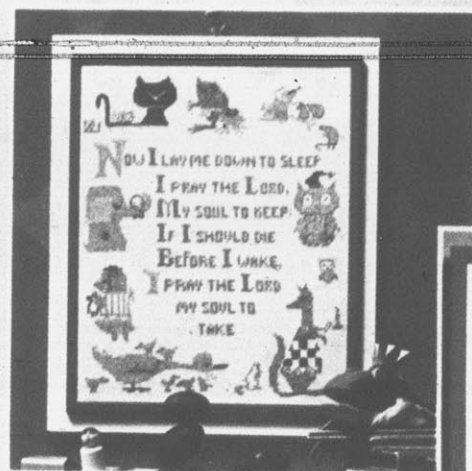 NOW I LAY ME DOWN TO SLEEP
I PRAY THE LORD,
MY SOUL TO KEEP:
IF I SHOULD DIE
BEFORE I WAKE,
I PRAY THE LORD
MY SOUL TO
TAKE